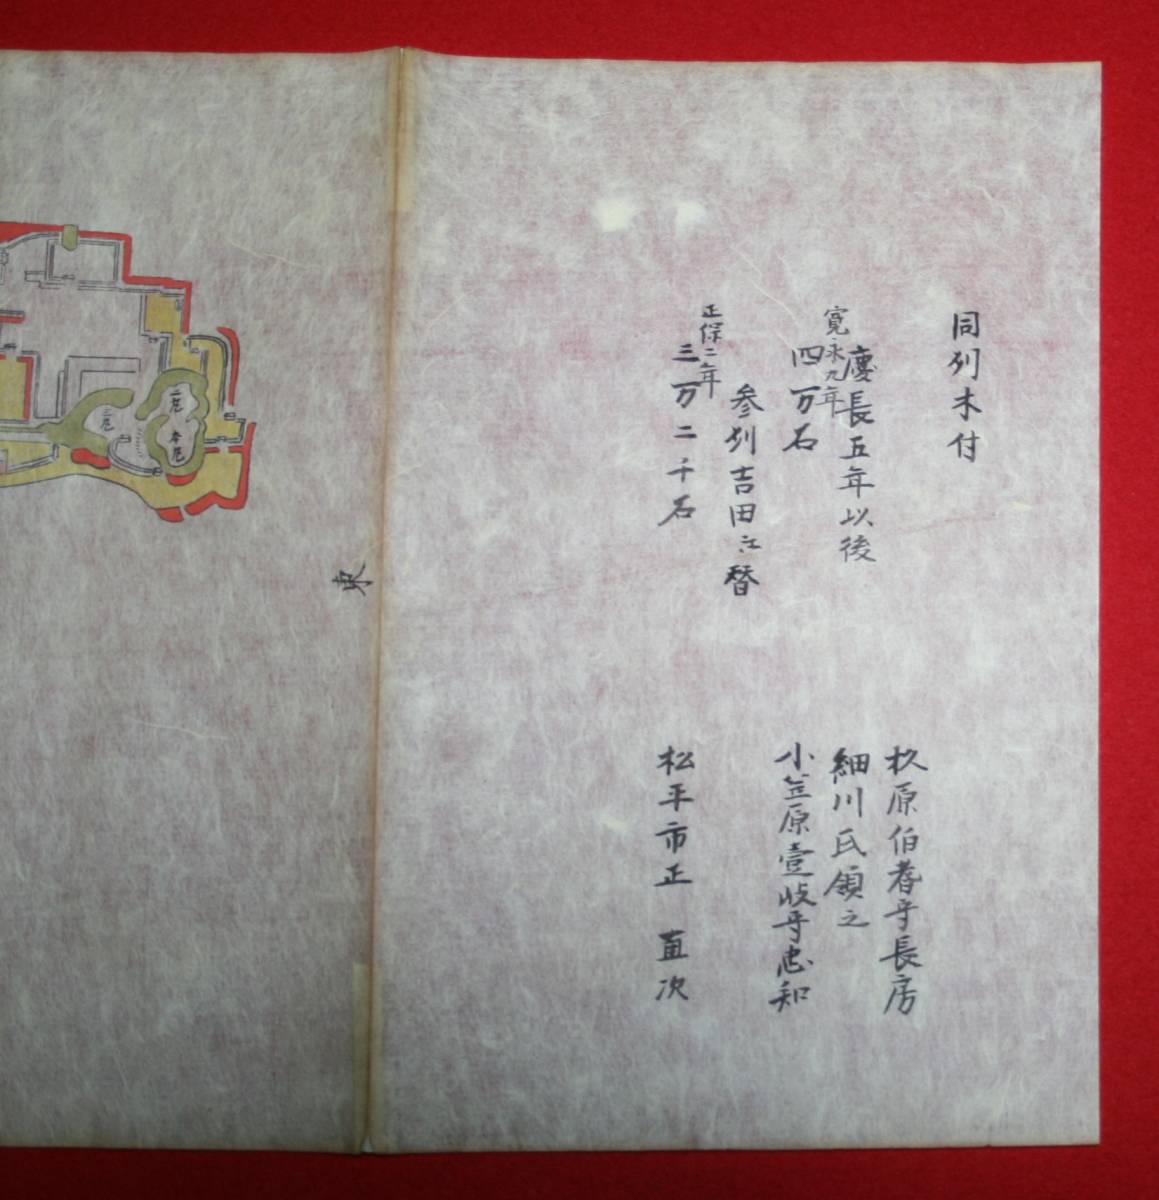 同列木付
杦原伯耆守長房
慶長五年以後
細川氏領之
寛永九年
四万石
小笠原壹岐守忠知
参列吉田江替
正保二年
三万二千石
松平市正 直次
東
二ノ丸
本丸
三ノ丸